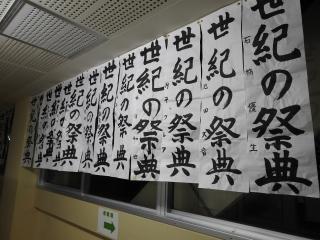 世紀の祭典
世紀の祭典
世紀の祭典
世紀の祭典
世紀の祭典
世紀の祭典
世紀の祭典
世紀の祭典
世紀の祭典
世紀の祭典
世紀の祭典